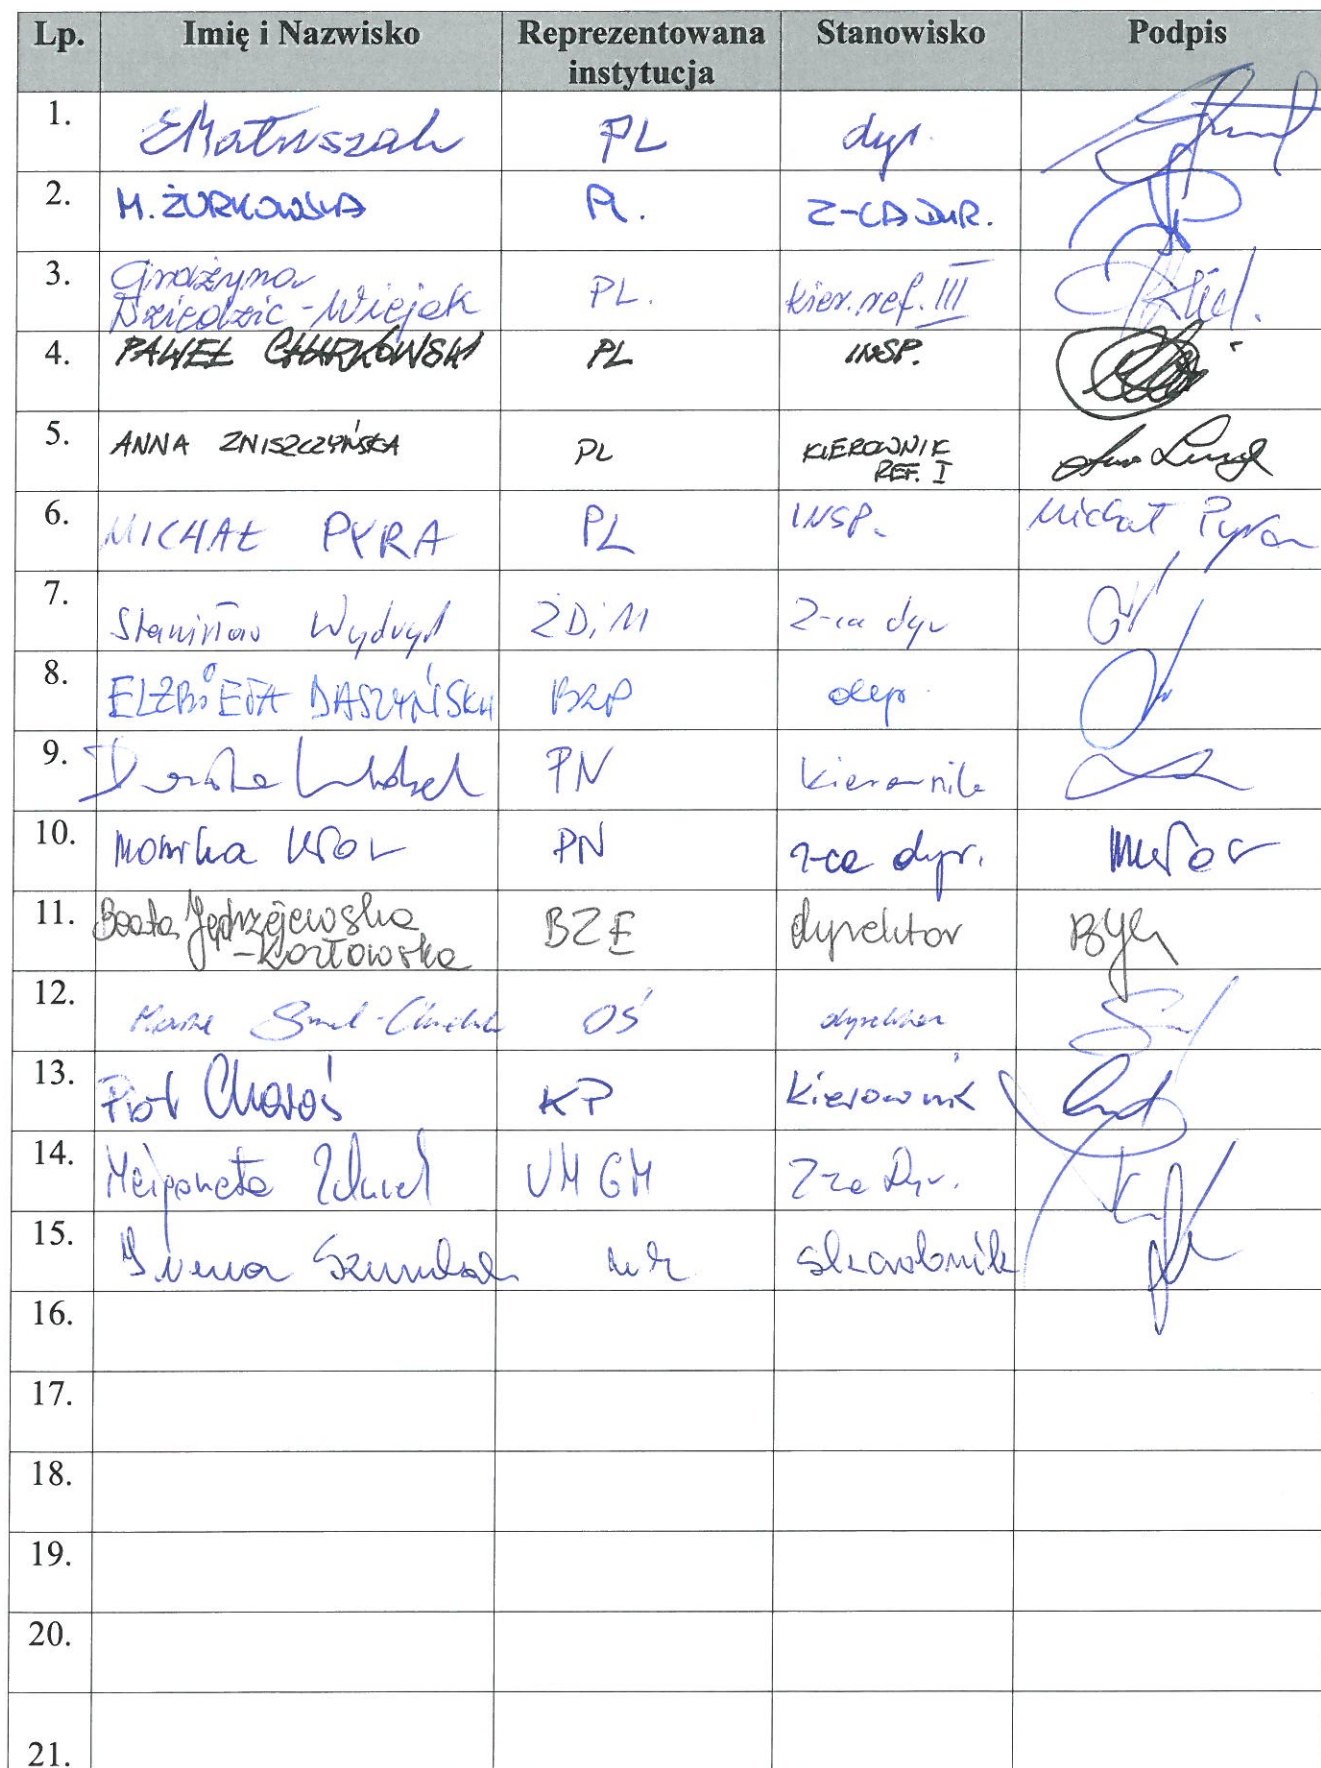 Lp. Imię i Nazwisko Reprezentowana instytucja Stanowisko Podpis
1. EMatuszak PL dyr.
2. M. ŻURKOWSKA PL. Z-CA DYR.
3. Grażyna Dziedzic-Wiejak PL. kier. ref. III
4. PAWEŁ CHARKOWSKI PL INSP.
5. ANNA ZNISZCZYŃSKA PL KIEROWNIK REF. I
6. MICHAŁ PYRA PL INSP. Michał Pyra
7. Stanisław ZDiM Z-ca dyr
8. ELŻBIETA DASZYŃSKA BZP
9. Dorota PN kierownik
10. Monika Król PN z-ca dyr. MKról
11. Beata Jędrzejewska
-Kozłowska BZE dyrektor
12. OŚ dyrektor
13. Piotr Choroś KP Kierownik
14. Małgorzata UM GM Z-ca Dyr.
15. Irena Szumlak skarbnik
16.
17.
18.
19.
20.
21.